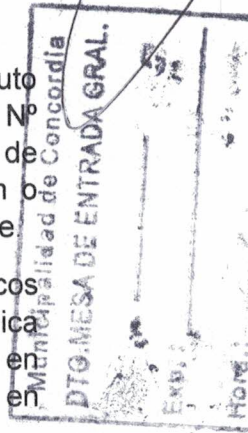 uto
Nº
de
n o
e
cos
ica
en
en
Municipalidad de Concordia
DTO. MESA DE ENTRADA GRAL.
Exp.:
Hora: